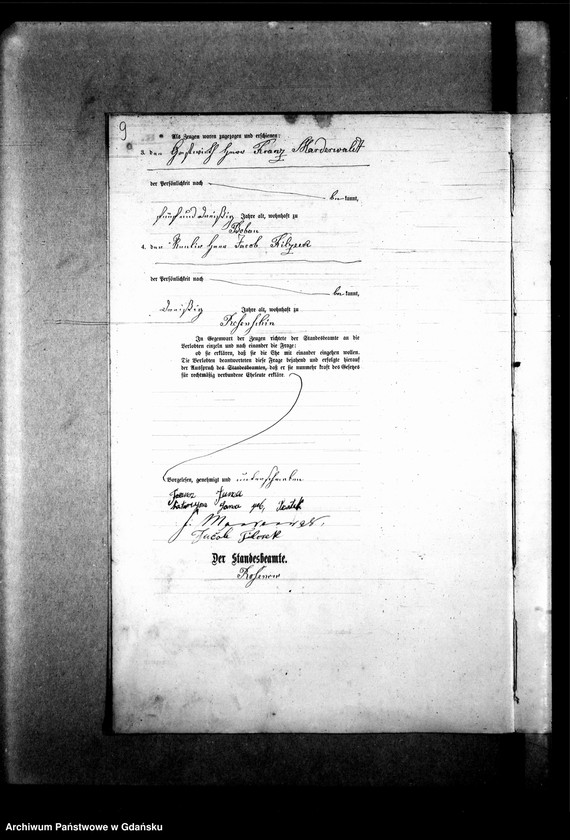 9
Als Zeugen waren zugezogen und erschienen:
3. den Gastwirth Herr Franz Marderwaldt
der Persönlichkeit nach
be kannt,
fünf und dreißig Jahre alt, wohnhaft zu
4. den Herr Jacob
der Persönlichkeit nach
be kannt,
dreißig Jahre alt, wohnhaft zu
In Gegenwart der Zeugen richtete der Standesbeamte an die
Verlobten einzeln und nach einander die Frage:
ob sie erklären, daß sie die Ehe mit einander eingehen wollen.
Die Verlobten beantworteten diese Frage bejahend und erfolgte hierauf
der Ausspruch des Standesbeamten, daß er sie nunmehr kraft des Gesetzes
für rechtmäßig verbundene Eheleute erkläre.
Vorgelesen, genehmigt und unterschrieben
geb,
Jacob
Der Standesbeamte.
Rosenow
Archiwum Państwowe w Gdańsku